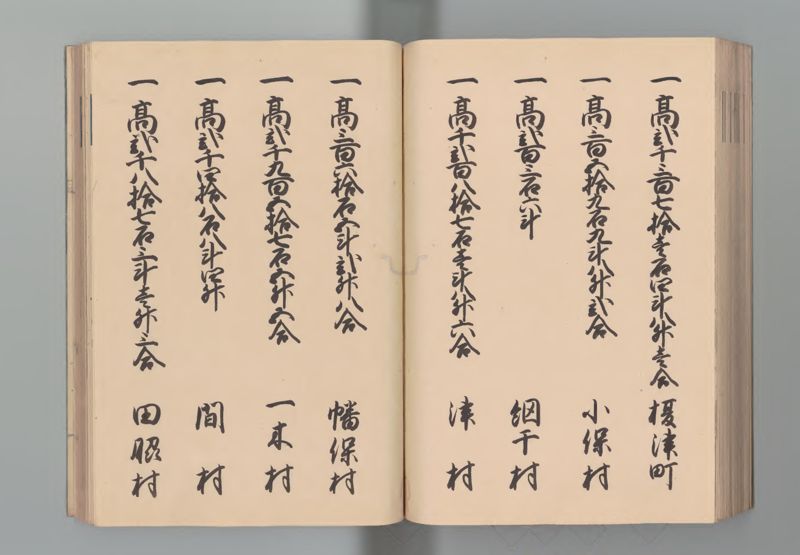 一高弐千三百七拾壱石四斗八升壱合 榎津町
一高三百五拾九石九斗八升弐合 小保村
一高弐百三石六斗 網干村
一高千弐百八拾七石壱斗八升六合 津村
一高三百六拾石五斗弐升八合 幡保村
一高弐千九百五拾七石五升五合 一木村
一高弐千四拾八石八斗四升 間村
一高弐千八拾七石三斗壱升三合 田脇村